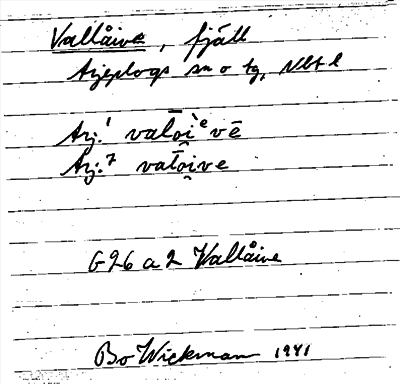 Vallåive, fjäll
Arjeplogs sn o tg, Nbt l
Arj.¹ valōiᵉvē
Arj.⁷ valōi̭ve
G26 a 2 Vallåive
Bo Wickman 1941